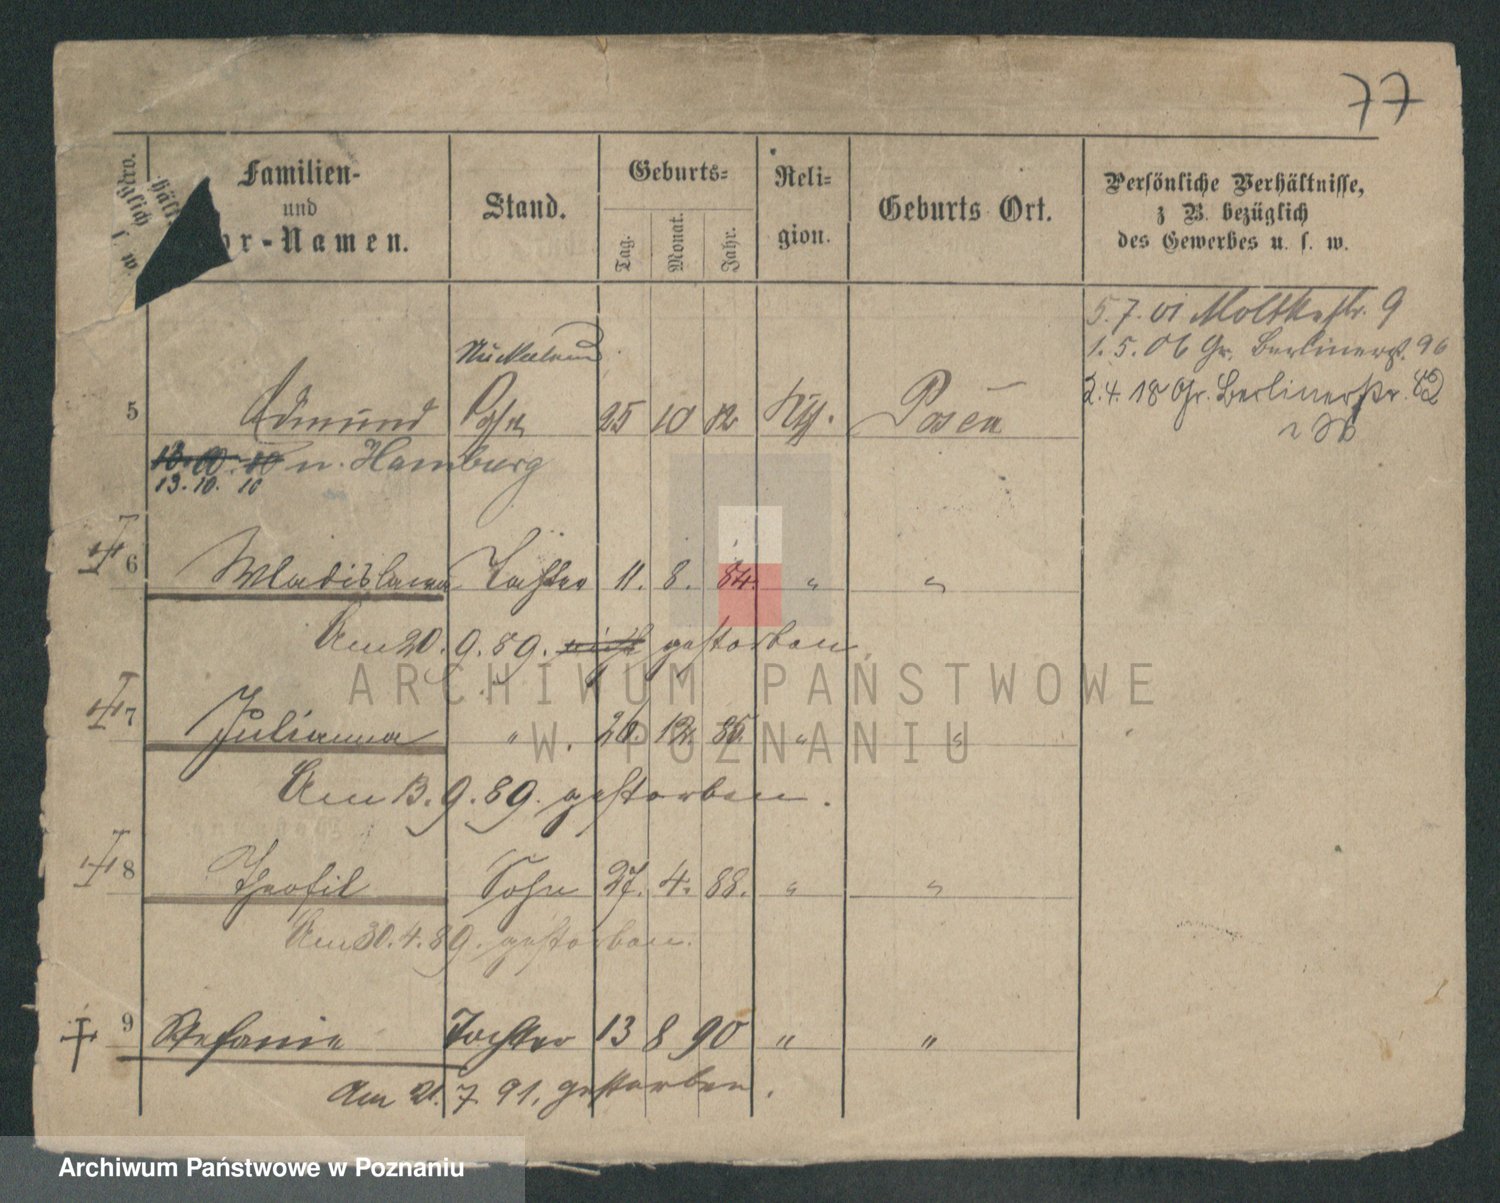 77
Familien-
und
or-Namen.
Stand.
Geburts-
Tag.
Monat.
Jahr.
Reli-
gion.
Geburts Ort.
Persönliche Verhältnisse,
z B. bezüglich
des Gewerbes u. s. w.
5.7.01 Moltkestr. 9
1.5.06 Gr. Berlinerst. 96
2.4.18 Gr. Berlinerstr. 82
5 Edmund Sohn 25 10 82 Kth. Posen
n. Hamburg
13. 10. 10
6 Wladislawa Tochter 11. 8. 84. " "
Am 20.9.89. gestorben.
7 Julianna " 26. 12. 85 " "
Am 13.9.89. gestorben.
8 Theofil Sohn 27. 4. 88. " "
Am 30.4.89. gestorben.
9 Stefanie Tochter 13 8 90 " "
Am 21.7.91. gestorben.
ARCHIWUM PAŃSTWOWE
W POZNANIU
Archiwum Państwowe w Poznaniu